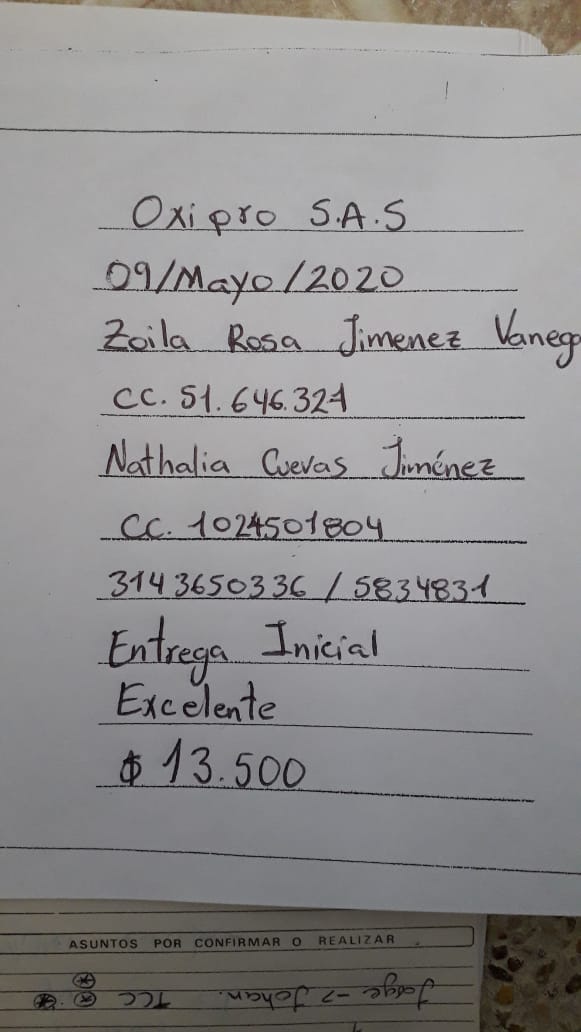 Oxipro S.A.S
09/Mayo/2020
Zoila Rosa Jimenez Vaneg
CC. 51.646.321
Nathalia Cuevas Jiménez
CC. 1024501804
3143650336 / 5834831
Entrega Inicial
Excelente
$ 13.500
ASUNTOS POR CONFIRMAR O REALIZAR
Jorge -> Johan. TCC